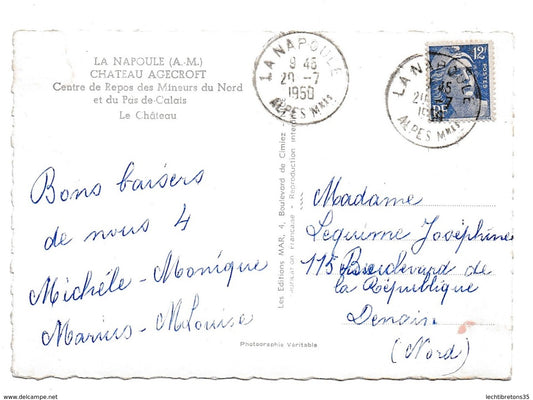 LA NAPOULE (A.-M.)
CHATEAU AGECROFT
Centre de Repos des Mineurs du Nord
et du Pas-de-Calais
Le Château
LA NAPOULE
9 45
20 -7
1950
ALPES Mmes
LA NAPOULE
45
-7
ALPES Mmes
12F
POSTES
RF
Bons baisers
de nous 4
Michéle - Monique
Marius - M.Louise
Les Editions MAR, 4, Boulevard de Cimiez
Fabrication Française - Reproduction
Madame
Lequime Joséphine
115 Boulevard de
la République
Denain
(Nord)
Photographie Véritable
www.delcampe.net
lechtibretons35